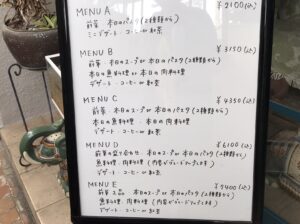 MENU A ¥2100(込)
前菜 本日のパスタ(2種類から)
ミニデザート コーヒーor紅茶
MENU B ¥3150(込)
前菜 本日のスープ or 本日のパスタ(2種類から)
本日の魚料理 or 本日の肉料理
デザート コーヒー or 紅茶
MENU C ¥4350(込)
前菜 本日のスープ or 本日のパスタ(2種類から)
本日の魚料理 本日の肉料理
デザート コーヒー or 紅茶
MENU D ¥6100(込)
前菜の盛り合わせ 本日のスープ or 本日のパスタ(2種類から)
魚料理 肉料理 (内容がグレードアップします)
デザート コーヒー or 紅茶
MENU E ¥7400(込)
前菜2品 本日のスープ or 本日のパスタ(2種類から)
魚料理 肉料理 (内容がグレードアップします)
デザート コーヒー or 紅茶